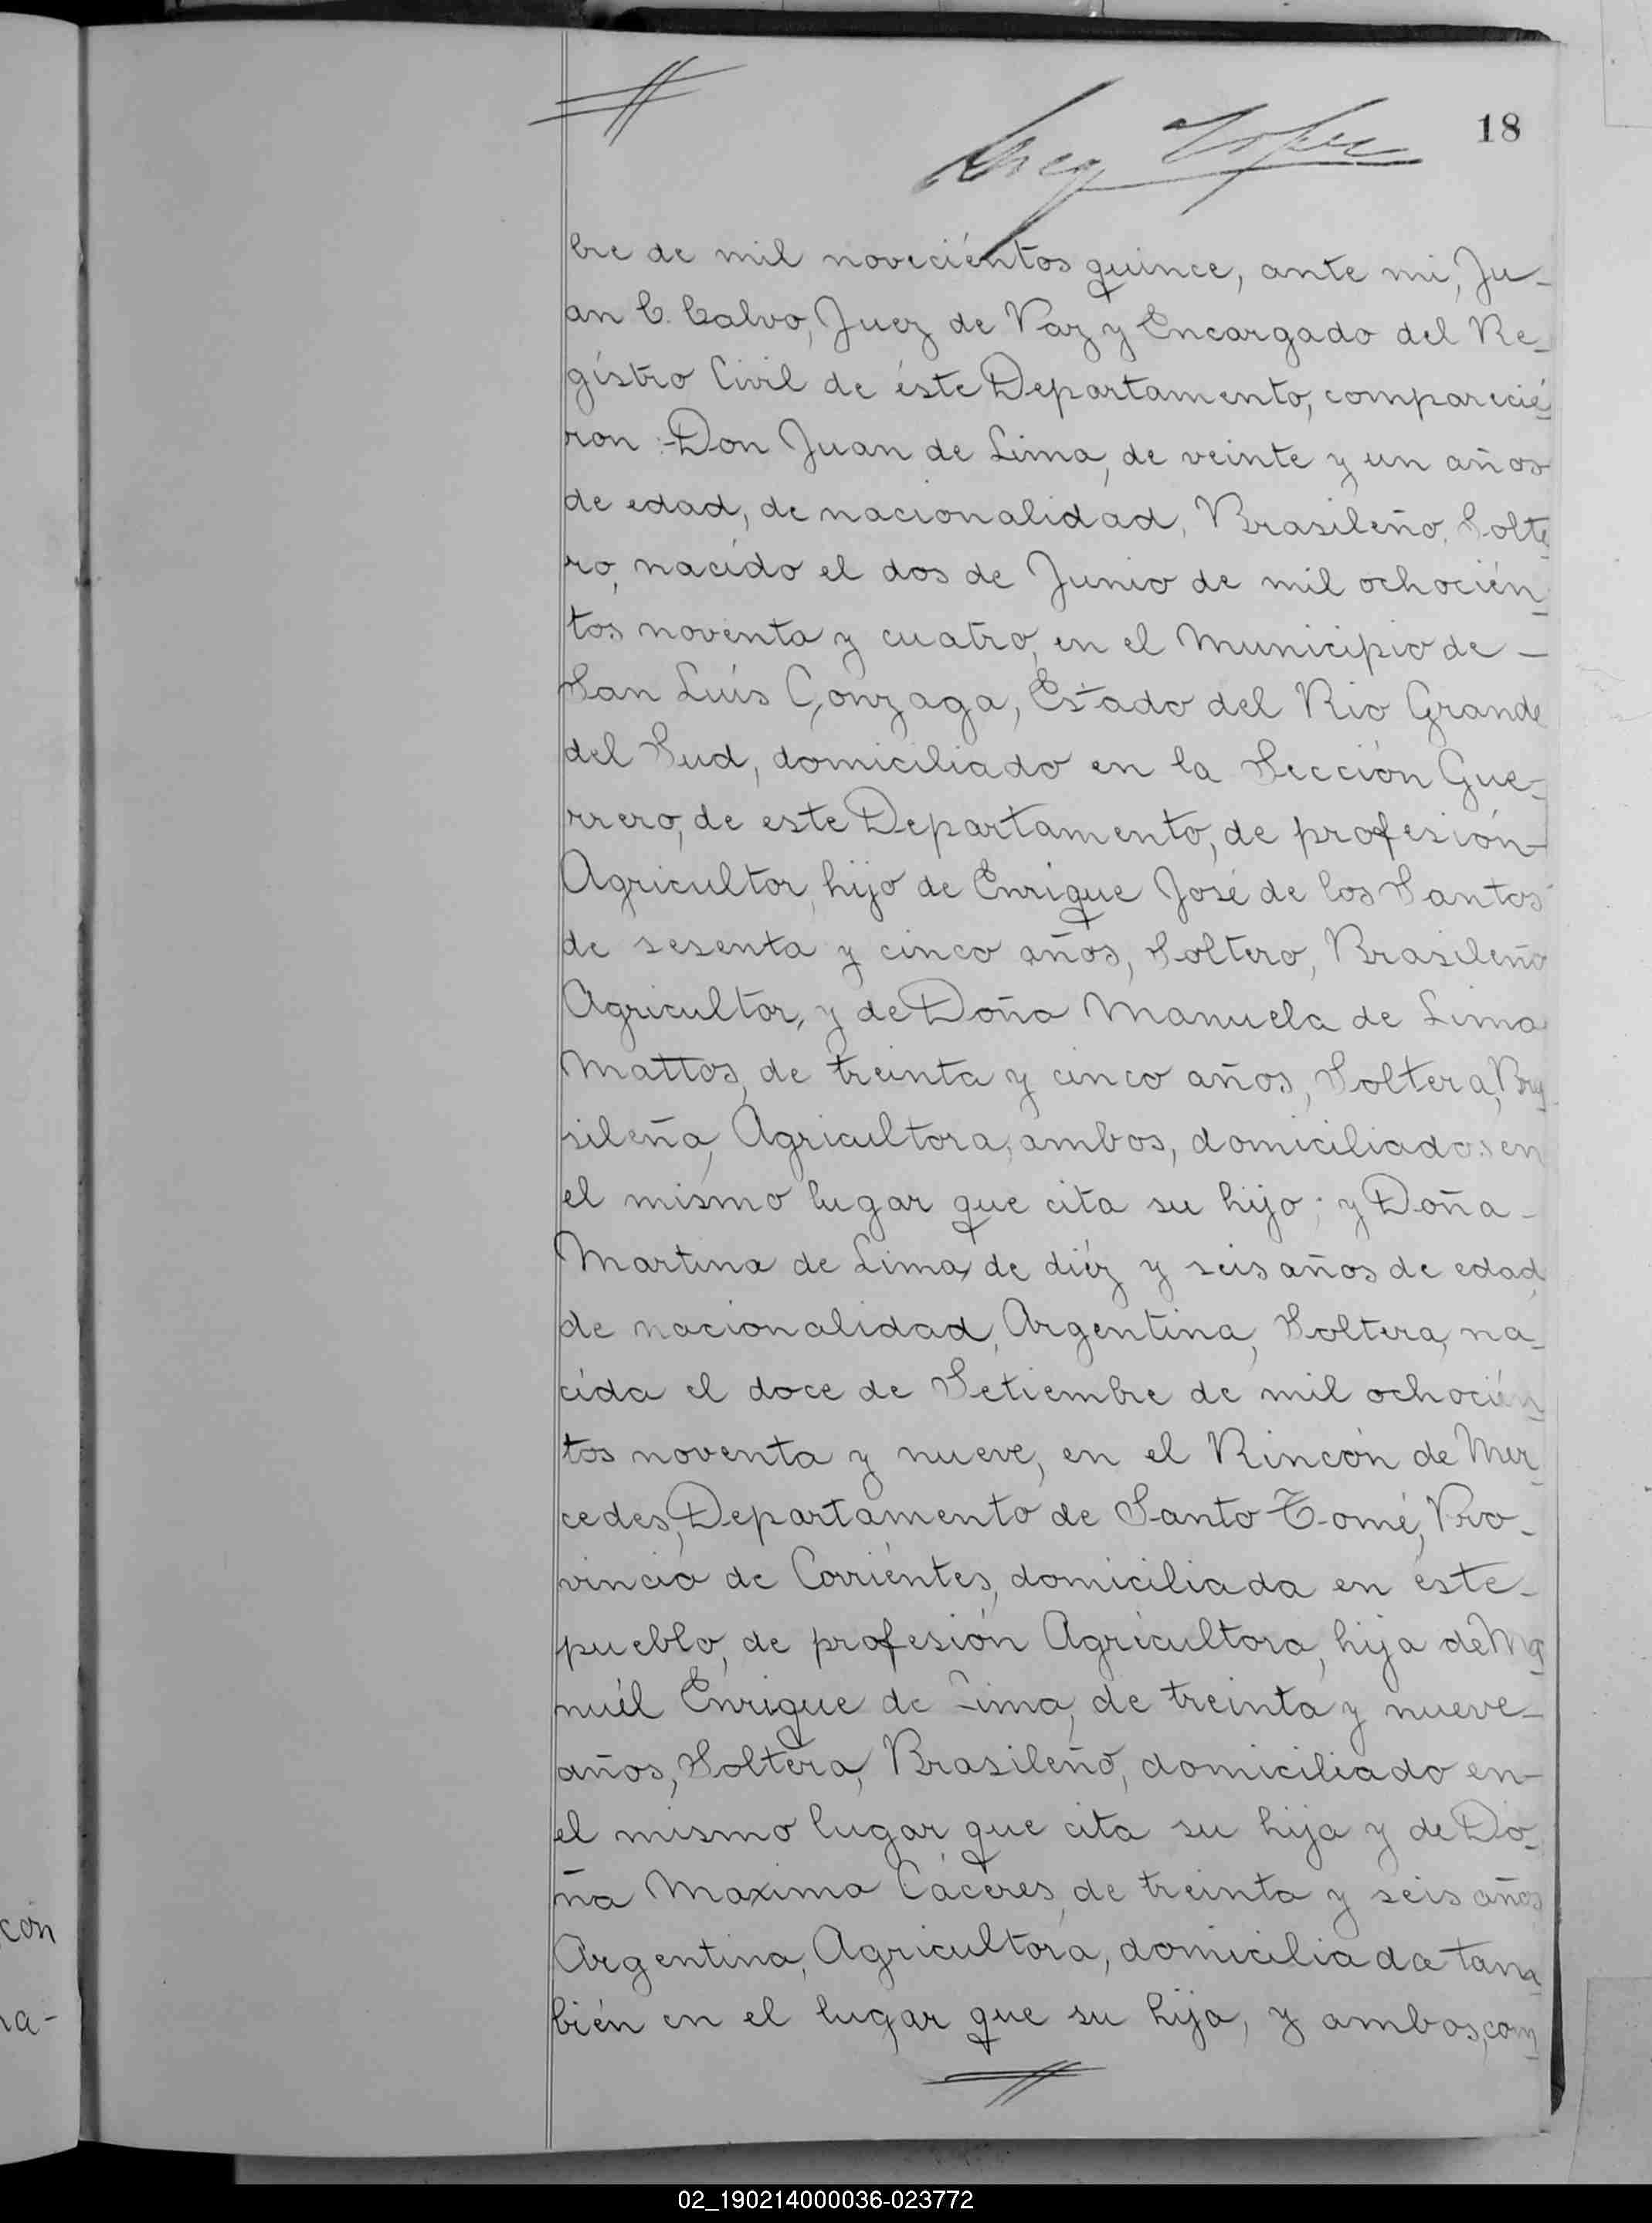 18
bre de mil noveciéntos quince, ante mi, Ju-
an C. Calvo, Juez de Paz y Encargado del Re-
gístro Civil de éste Departamento, comparecié
ron:-Don Juan de Lima, de veinte y un años
de edad, de nacionalidad, Brasileño, Solte
ro, nacido el dos de Junio de mil ochocién-
tos noventa y cuatro, en el Municipio de -
San Luís Gonzaga, Estado del Rio Grande
del Sud, domiciliado en la Sección Gue-
rrero, de este Departamento, de profesión-
Agricultor, hijo de Enrique José de los Santos
de sesenta y cinco años, Soltero, Brasileño
Agricultor, y de Doña Manuela de Lima
Mattos, de treinta y cinco años, Soltera, Bra
sileña, Agricultora, ambos, domiciliados en
el mísmo lugar que cita su hijo; y Doña-
Martina de Lima, de diéz y seis años de edad,
de nacionalidad, Argentina, Soltera, na-
cida el doce de Setiembre de mil ochocién
tos noventa y nueve, en el Rincón de Mer-
cedes, Departamento de Santo Tomé, Pro-
vincia de Corriéntes, domiciliada en éste-
pueblo, de profesión Agricultora, hija de Ma
nuél Enrique de Lima, de treinta y nueve-
años, Soltera, Brasileño, domiciliado en-
el mismo lugar que cita su hija y de Do-
ña Maxima Cáceres, de treinta y seis años
Argentina, Agricultora, domiciliada tam
bién en el lugar que su hija, y ambos, com
con
na-
02_190214000036-023772